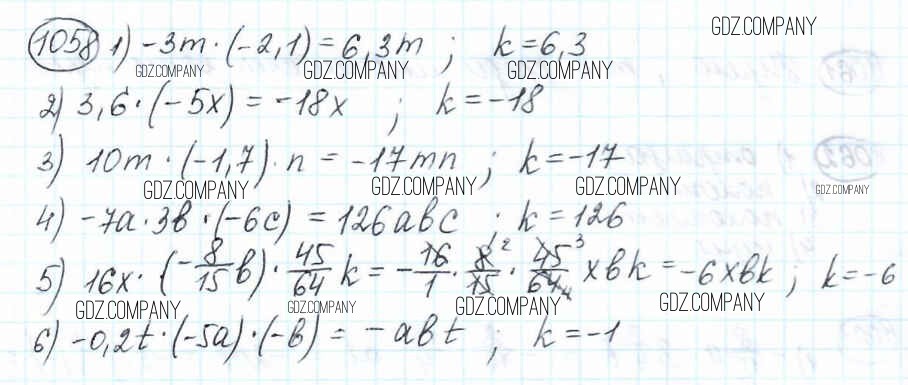 GDZ.COMPANY
1058 1) -3m · (-2,1) = 6,3m ; k = 6,3
GDZ.COMPANY GDZ.COMPANY GDZ.COMPANY
2) 3,6 · (-5x) = -18x ; k = -18
3) 10m · (-1,7) · n = -17mn ; k = -17
GDZ.COMPANY GDZ.COMPANY GDZ.COMPANY GDZ.COMPANY
4) -7a · 3b · (-6c) = 126abc ; k = 126
5) 16x · (-8/15 b) · 45/64 k = -16/1 · 8/15 · 45/64 xbk = -6xbk ; k = -6
GDZ.COMPANY GDZ.COMPANY GDZ.COMPANY GDZ.COMPANY
6) -0,2t · (-5a) · (-b) = -abt ; k = -1